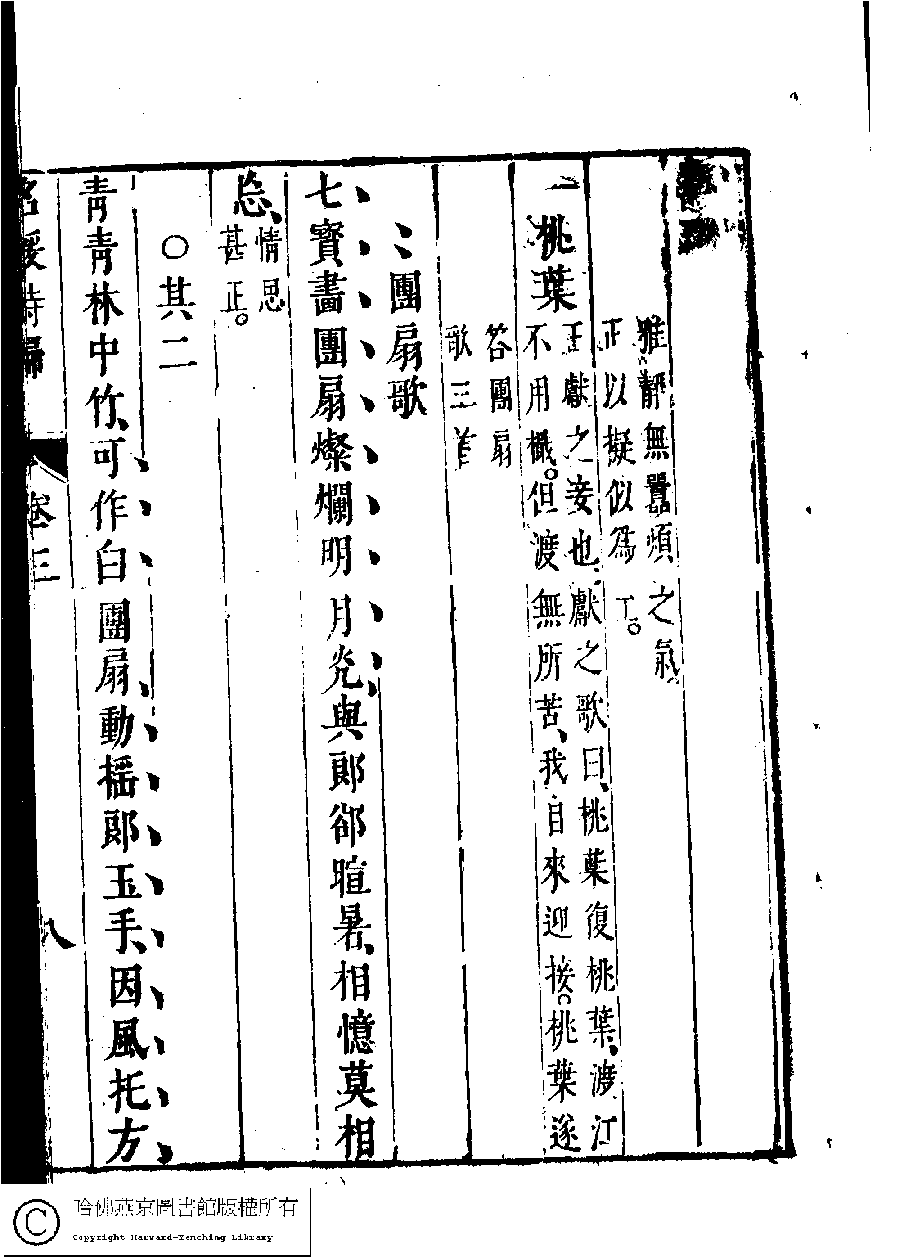 雅靜無囂煩之氣
正以擬似為工。
桃葉
王獻之妾也、獻之歌曰、桃葉復桃葉、渡江
不用檝。但渡無所苦、我自來迎接。桃葉遂
答團扇
歌三首
團扇歌
七寶畫團扇燦爛明月光與郎郤暄暑、相憶莫相
忘、
情思
甚正。
○其二
青青林中竹、可作白團扇、動搖郎玉手、因風托方
名媛詩歸
卷三
八
哈佛燕京圖書館版權所有
Copyright Harvard-Yenching Library